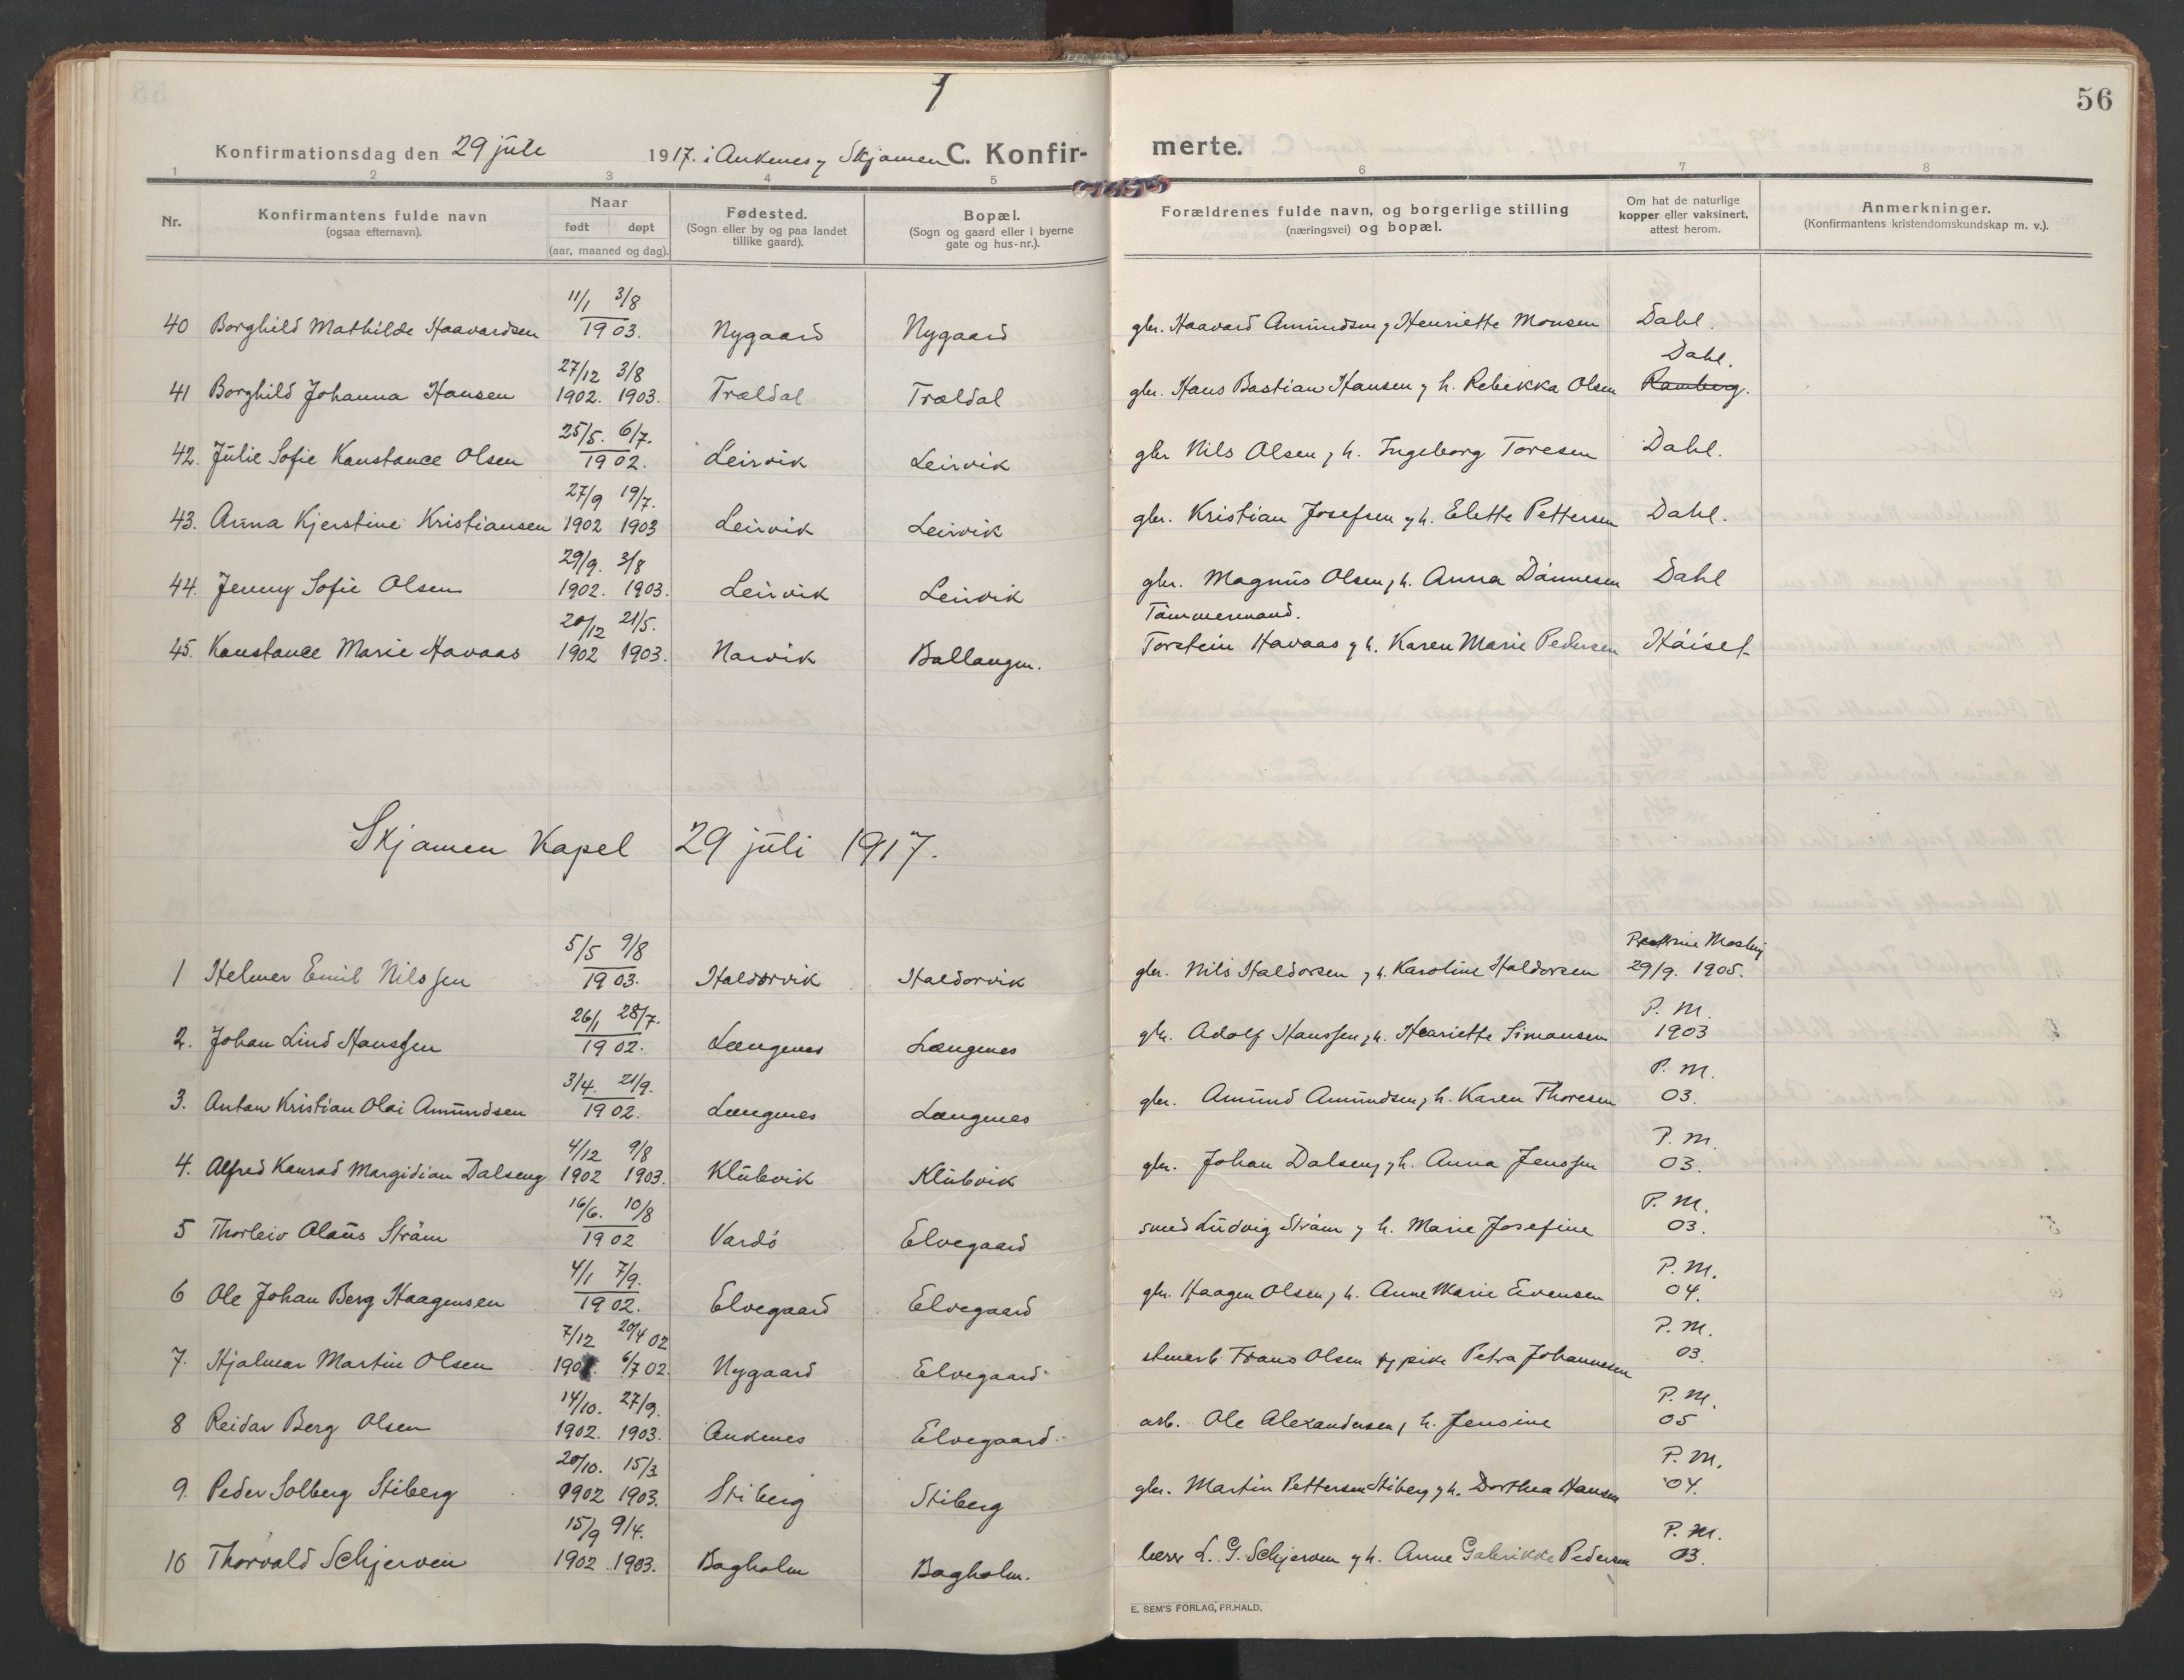 56
Konfirmationsdag den 29 juli 1917. i Ankenes og Skjomen C. Konfirmerte.
1 2 3 4 5 6 7 8
Nr.
Konfirmantens fulde navn
(ogsaa efternavn).
Naar
født døpt
(aar, maaned og dag).
Fødested.
(Sogn eller by og paa landet
tillike gaard).
Bopæl.
(Sogn og gaard eller i byerne
gate og hus-nr.).
Forældrenes fulde navn, og borgerlige stilling
(næringsvei) og bopæl.
Om hat de naturlige
kopper eller vaksinert,
attest herom.
Anmerkninger.
(Konfirmantens kristendomskundskap m. v.).
11/1 3/8
40 Borghild Mathilde Haavardsen 1903. Nygaard Nygaard gbr. Haavard Amundsen og Henriette Monsen Dahl.
27/12 3/8 Dahl.
41 Borghild Johanna Hansen 1902. 1903. Trældal Trældal gbr. Hans Bastian Hansen og h. Rebekka Olsen Ramberg.
25/5. 6/7.
42. Julie Sofie Konstance Olsen 1902. Leirvik Leirvik gbr Nils Olsen og h. Ingeborg Toresen Dahl.
27/9 19/7.
43. Anna Kjerstine Kristiansen 1902 1903 Leirvik Leirvik gbr. Kristian Josefsen og h. Elette Pettersen Dahl.
29/9. 3/8
44. Jenny Sofie Olsen 1902. 1903. Leirvik Leirvik gbr. Magnus Olsen og h. Anna Dønnesen Dahl
20/12 21/5. Tømmermand.
45. Konstance Marie Havaas 1902 1903. Narvik Ballangen. Torstein Havaas og h. Karen Marie Pedersen Høiset
Skjomen Kapel 29 juli 1917.
5/5 9/8 Moskny
1 Helmer Emil Nilssen 1903. Haldorvik Haldorvik gbr. Nils Haldorsen og h. Karoline Haldorsen 29/9. 1905.
26/1 28/7. P. M.
2. Johan Lind Hanssen 1902. Længenes Længenes gbr. Adolf Hanssen og h. Henriette Simonsen 1903
3/4. 21/9. P. M.
3. Anton Kristian Olai Amundsen 1902. Længenes Længenes gbr. Amund Amundsen og h. Karen Thoresen 03.
4/12 9/8 P. M.
4. Alfred Konrad Margidian Dalseng 1902 1903. Klubvik Klubvik gbr. Johan Dalseng og h. Anna Jenssen 03.
16/6. 10/8 P. M.
5 Thorleiv Olaus Strøm 1902 Vardö Elvegaard smed Ludvig Strøm og h. Marie Josefine 03.
4/1 7/9. P. M.
6 Ole Johan Berg Haagensen 1902. Elvegaard Elvegaard gbr. Haagen Olsen og h. Anne Marie Evensen 04.
7/12 20/4 02 P. M.
7. Hjalmar Martin Olsen 1901. 6/7 02. Nygaard Elvegaard stenarb Frans Olsen og pike Petra Johannesen 03.
14/10. 27/9. P. M.
8 Reidar Berg Olsen 1902. 1903. Ankenes Elvegaard arb. Ole Alexandersen og h. Jensine 05
20/10. 15/3 P. M.
9. Peder Solberg Stiberg 1902 1903. Stiberg Stiberg gbr. Martin Pettersen Stiberg og h. Dorthea Hansen 04.
15/9 9/4. P. M.
10 Thorvald Schjerven 1902. 1903. Bogholm Bogholm. lærer L. G. Schjerven og h. Anne Gabrikke Pedersen 03.
E. SEM'S FORLAG, FR.HALD.